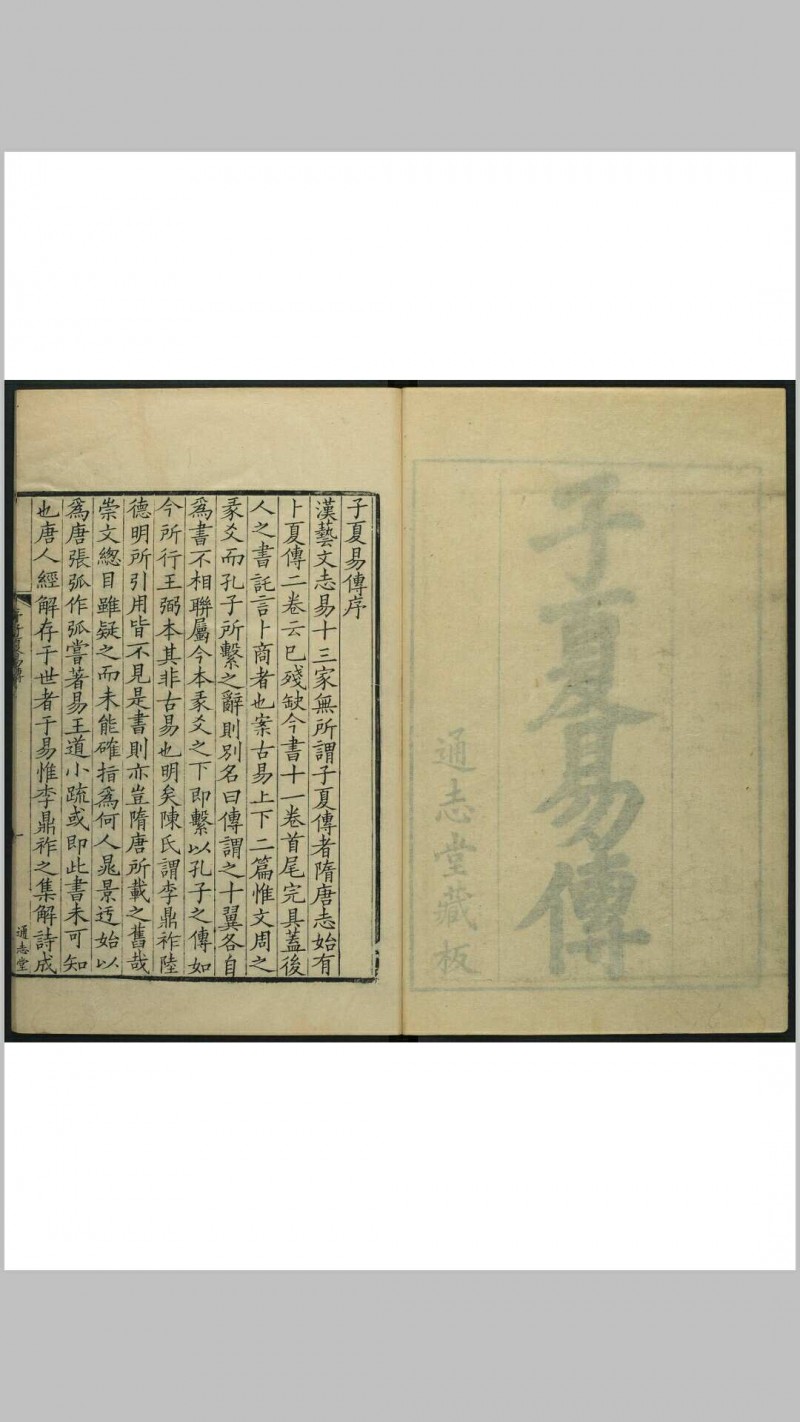 子夏易傳
通志堂藏板
子夏易傳序
漢藝文志易十三家無所謂子夏傳者隋唐志始有
卜夏傳二卷云已殘缺今書十一卷首尾完具蓋後
人之書託言卜商者也案古易上下二篇惟文周之
彖爻而孔子所繫之辭則別名曰傳謂之十翼各自
爲書不相聯屬今本彖爻之下即繫以孔子之傳如
今所行王弼本其非古易也明矣陳氏謂李鼎祚陸
德明所引用皆不見是書則亦豈隋唐所載之舊哉
崇文緫目雖疑之而未能確指爲何人晁景迂始以
爲唐張弧作弧嘗著易王道小疏或即此書未可知
也唐人經解存于世者于易惟李鼎祚之集解詩成
子夏易傳
一
通志堂